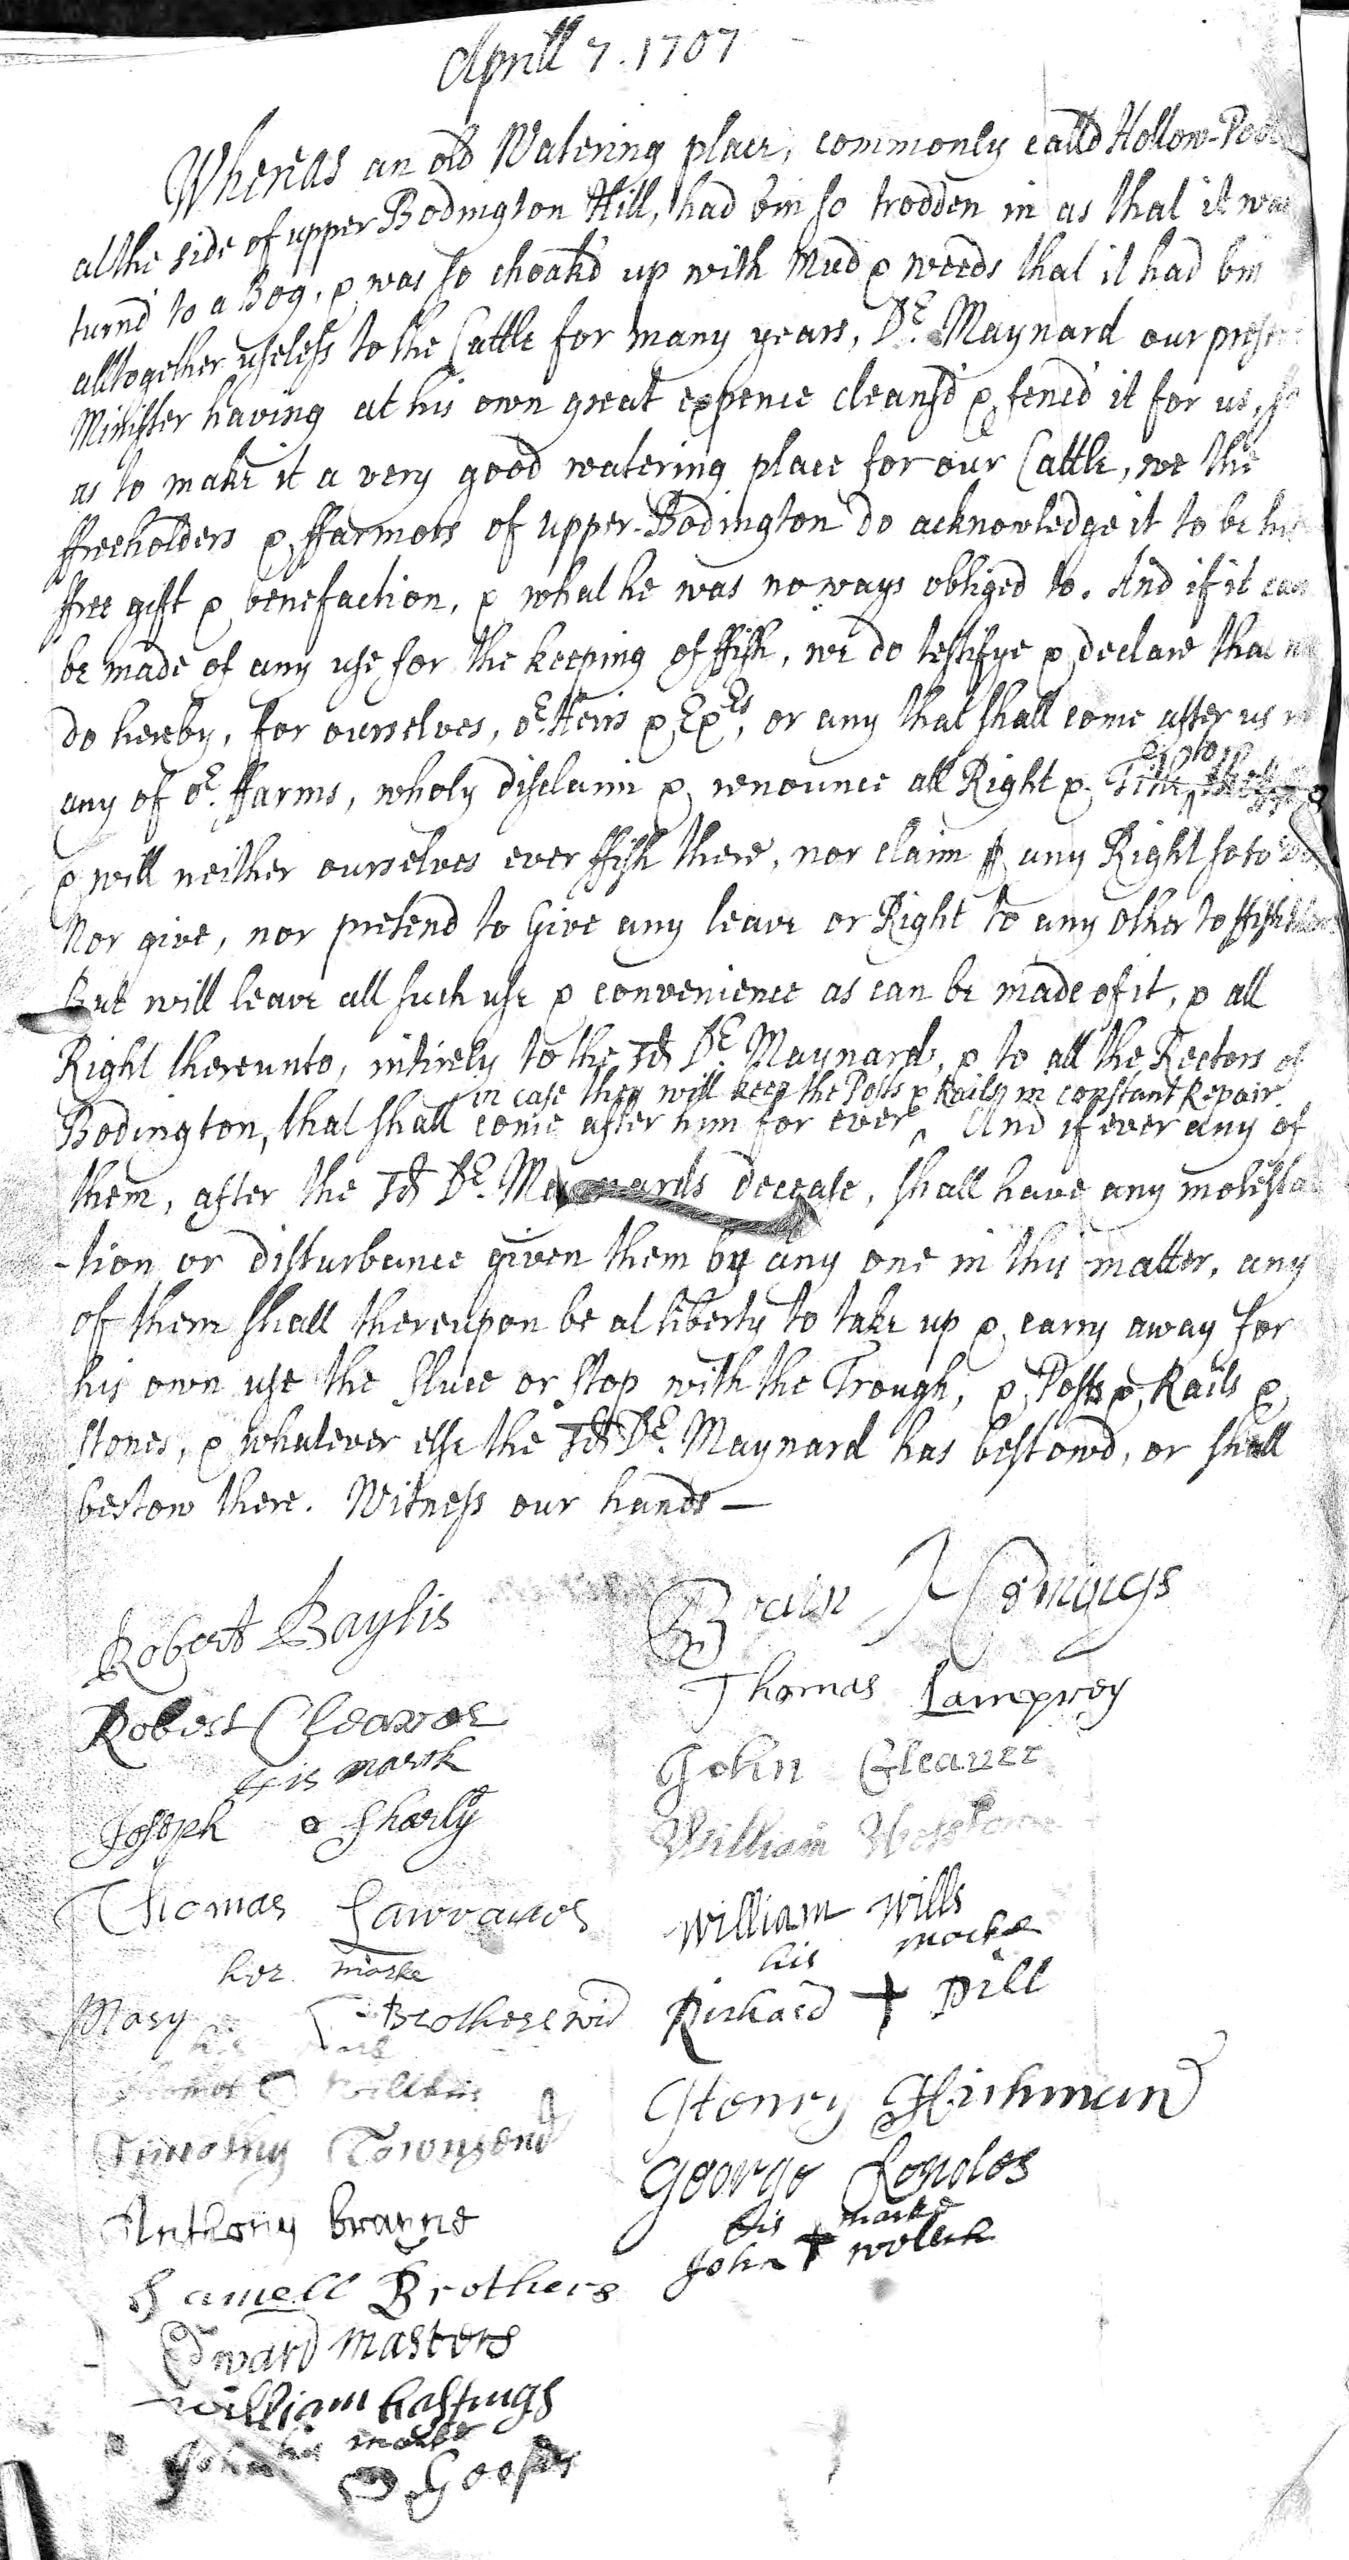 Aprill 7. 1707
Whereas an old Watering place, commonly calld Hollow-Pool
at the side of upper Bodington Hill, had bin so trodden in as that it was
turnd to a Bog, & was so choak'd up with Mud & weeds that it had bin
alltogether useless to the Cattle for many years, Dr. Maynard our present
Minister having at his own great expence cleans'd & fenc'd it for us, so
as to make it a very good watering place for our Cattle, we the
ffreeholders & ffarmors of upper-Bodington do acknowledge it to be his
ffree gift & benefaction, & what he was no ways obliged to. And if it can
be made of any use for the keeping of ffish, we do testifye & declare that we
do hereby, for ourselves, or. Heirs & Exrs, or any that shall come after us in
any of or. ffarms, wholy disclaim & renounce all Right &
& will neither ourselves ever ffish there, nor claim any Right so to do,
Nor give, nor pretend to Give any leave or Right to any other to ffish there
But will leave all such use & convenience as can be made of it, & all
Right thereunto, intirely to the sd Dr. Maynard, & to all the Rectors of
in case they will keep the Posts & Rails in constant Repair.
Bodington, that shall come after him for ever ‸ And if ever any of
them, after the sd Dr. Maynards decease, shall have any molesta
-tion or disturbance given them by any one in this matter, any
of them shall thereupon be at liberty to take up & carry away for
his own use the Sluce or Stop with the Trough, & Posts & Rails &
Stones, & whatever else the sd Dr. Maynard has bestowd, or shall
bestow there. Witness our hands —
Robert Baylis
Robert Cleaver
His mark
Joseph Sharly
Thomas Lawrance
her marke
Mary Brothers wid
Timothy Townsend
Anthony Brayne
Samell Brothers
Edward Masters
William hastings
John his marke
Cooper
Brain Hemings
Thomas Lamprey
John Cleaver
William
William Wills
his marke
Richard + Dill
Henry Hichman
George Londos
his marke
John +